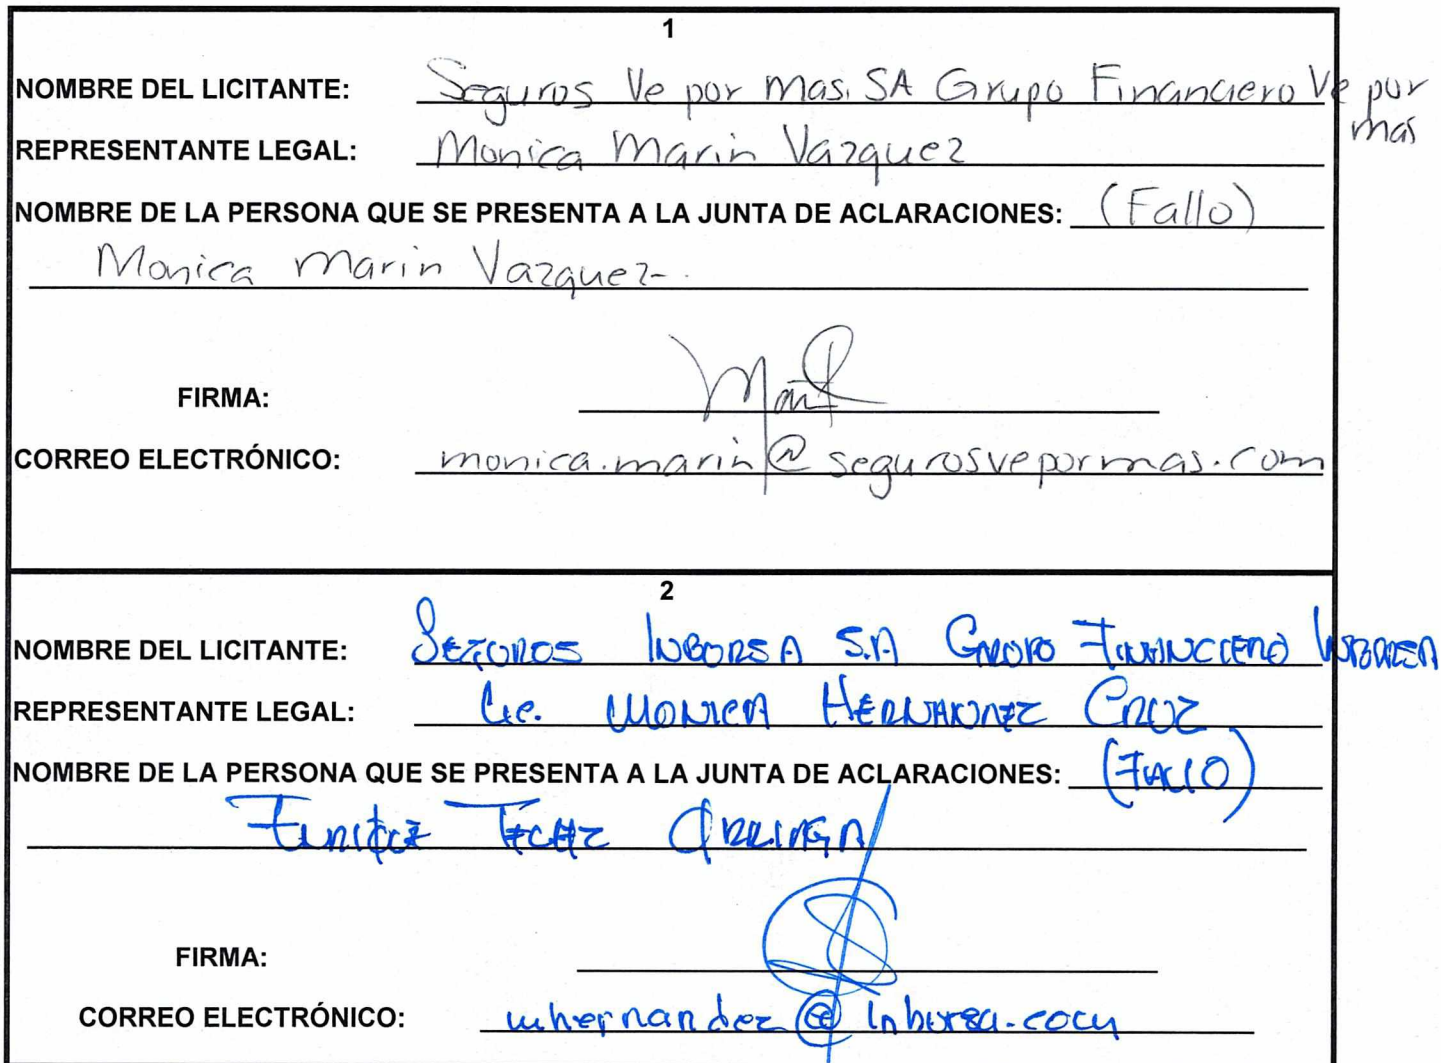 1
NOMBRE DEL LICITANTE: Seguros Ve por mas. SA Grupo Financiero Ve por
mas
REPRESENTANTE LEGAL: Monica Marin Vazquez
NOMBRE DE LA PERSONA QUE SE PRESENTA A LA JUNTA DE ACLARACIONES: (Fallo)
Monica Marin Vazquez
FIRMA:
CORREO ELECTRÓNICO: monica.marin@segurosvepormas.com
2
NOMBRE DEL LICITANTE: SEGUROS INBURSA S.A GRUPO FINANCIERO INBURSA
REPRESENTANTE LEGAL: Lic. MONICA HERNANDEZ CRUZ
NOMBRE DE LA PERSONA QUE SE PRESENTA A LA JUNTA DE ACLARACIONES: (FALLO)
FIRMA:
CORREO ELECTRÓNICO: mhernandez@inbursa.com